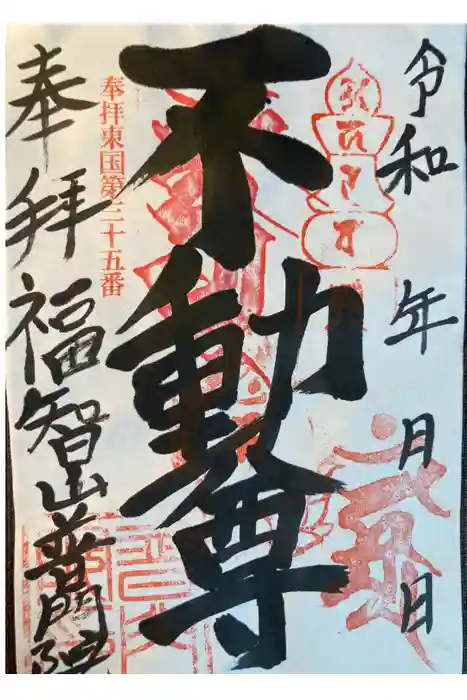 令和 年 月 日
不動尊
奉拝東国第三十五番
奉拝 福智山普門院